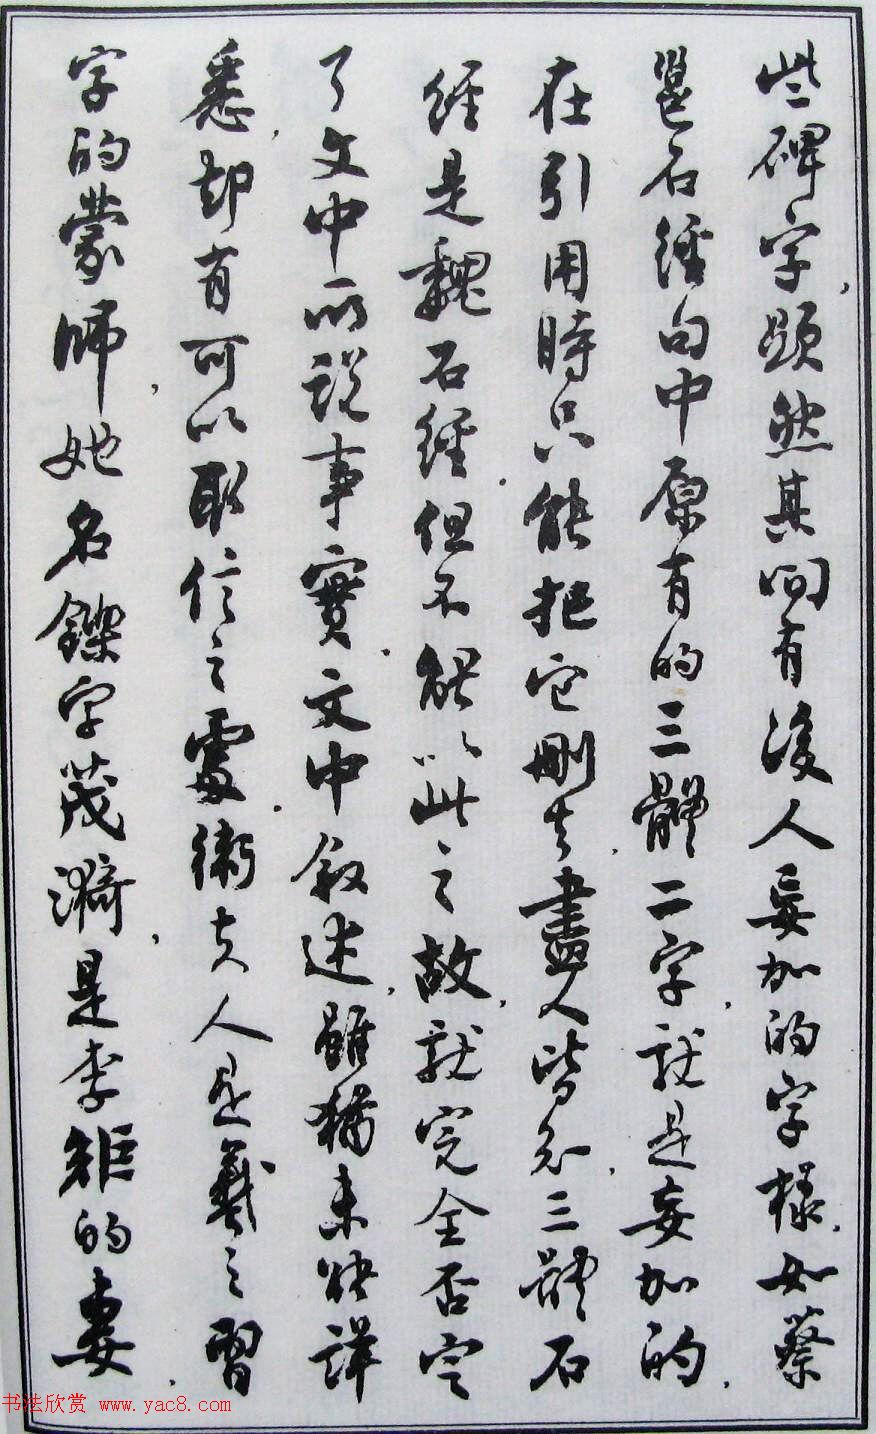 些碑字,顯然其间有後人妄加的字樣,如蔡
邕石經句中原有的三體二字,就是妄加的,
在引用時只能把它刪去,盡人皆知,三體石
經是魏石經,但不能以此之故,就完全否定
了文中所說事實,文中叙述雖猶未能詳
悉,却有可以取信之處,衛夫人是羲之習
字的蒙師,她名鑠,字茂漪,是李矩的妻,
书法欣赏 www.yac8.com